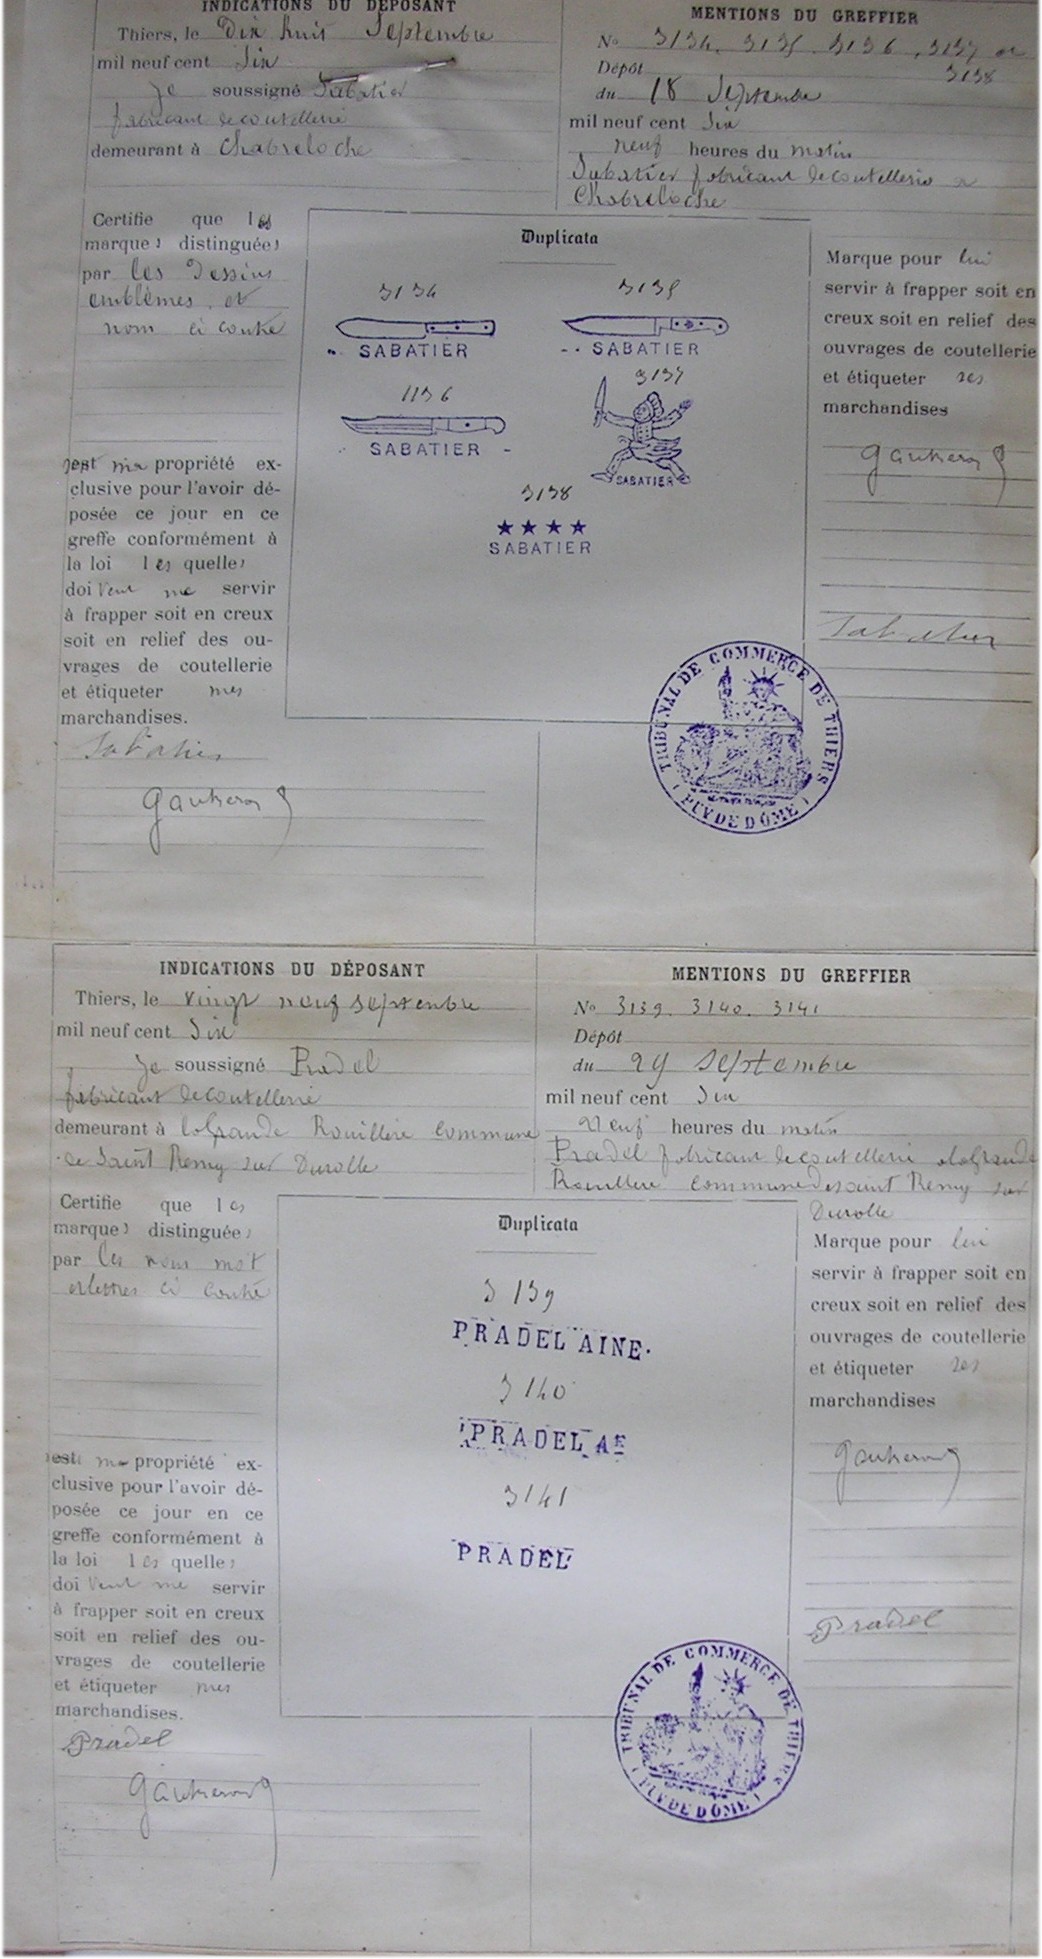 INDICATIONS DU DÉPOSANT
Thiers, le Dix huit Septembre
mil neuf cent Six
Je soussigné Sabatier
fabricant de coutellerie
demeurant à Chabreloche
MENTIONS DU GREFFIER
No 3134. 3135. 3136. 3137 et
3138
Dépôt
du 18 Septembre
mil neuf cent Six
neuf heures du matin
Sabatier fabricant de coutellerie a
Chabreloche
Certifie que les
marques distinguées
par les Dessins
emblèmes et
nom ci contre
est ma propriété ex-
clusive pour l'avoir dé-
posée ce jour en ce
greffe conformément à
la loi les quelles
doivent me servir
à frapper soit en creux
soit en relief des ou-
vrages de coutellerie
et étiqueter mes
marchandises.
Sabatier
Gautheron
Duplicata
3134
SABATIER
3135
SABATIER
1136
SABATIER
3137
SABATIER
3138
★★★★
SABATIER
Marque pour lui
servir à frapper soit en
creux soit en relief des
ouvrages de coutellerie
et étiqueter ses
marchandises
Gautheron
Sabatier
TRIBUNAL DE COMMERCE DE THIERS
(PUY DE DÔME)
INDICATIONS DU DÉPOSANT
Thiers, le vingt neuf septembre
mil neuf cent Six
Je soussigné Pradel
fabricant de coutellerie
demeurant à la Grande Rouillere commune
de Saint Remy sur Durolle
MENTIONS DU GREFFIER
No 3139. 3140. 3141
Dépôt
du 29 Septembre
mil neuf cent Six
Neuf heures du matin
Pradel fabricant de coutellerie a la Grande
Rouillere commune de saint Remy sur
Durolle
Certifie que les
marques distinguées
par les nom mot
et lettres ci contre
est ma propriété ex-
clusive pour l'avoir dé-
posée ce jour en ce
greffe conformément à
la loi les quelles
doivent me servir
à frapper soit en creux
soit en relief des ou-
vrages de coutellerie
et étiqueter mes
marchandises.
Pradel
Gautheron
Duplicata
3139
PRADEL AINE.
3140
PRADEL AE
3141
PRADEL
Marque pour lui
servir à frapper soit en
creux soit en relief des
ouvrages de coutellerie
et étiqueter ses
marchandises
Gautheron
Pradel
TRIBUNAL DE COMMERCE DE THIERS
(PUY DE DÔME)